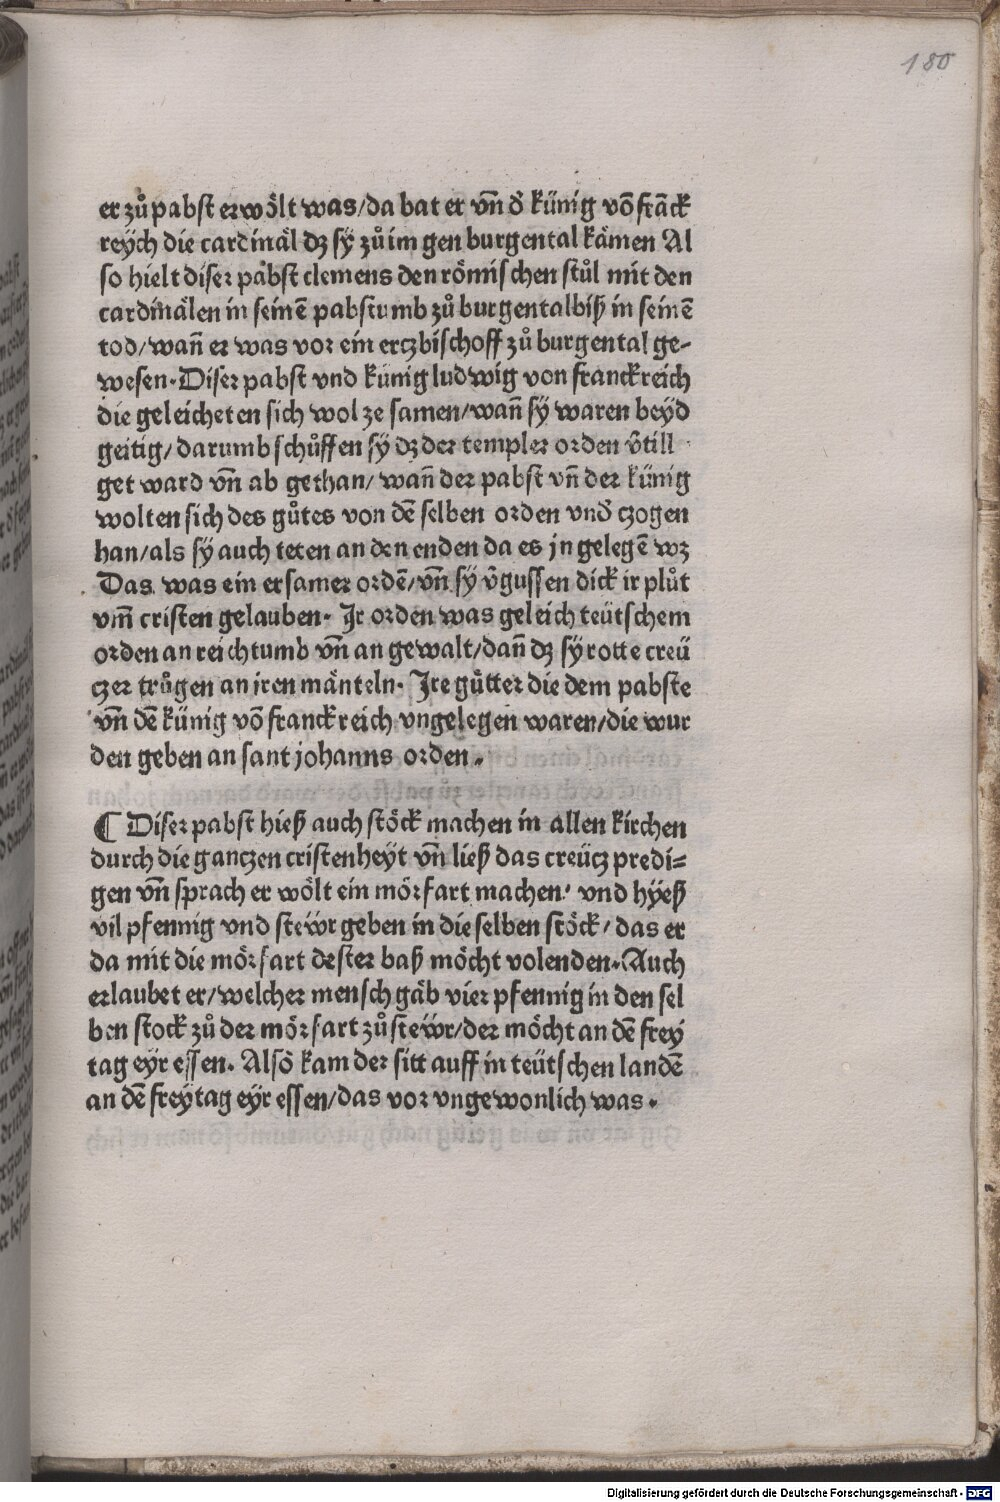 180
er zů pabst erwölt was/da bat er vñ d̕ künig võ frãck
reÿch die cardinäl dꝫ sÿ zů im gen burgental kämen Al
so hielt diser pabst clemens den römischen stůl mit den
cardinälen in seinẽ pabstumb zů burgental biß in seinẽ
tod/wañ er was vor ein erczbischoff zů burgental ge-
wesen. Diser pabst vnd künig ludwig von franckreich
die geleicheten sich wol ze samen/wañ sÿ waren beÿd
geitig/darumb schůffen sÿ dꝫ der templer orden v̕till
get ward vñ ab gethan/wañ der pabst vñ der künig
wolten sich des gůtes von dẽ selben orden vnd̕ czogen
han/als sÿ auch teten an den enden da es jn gelegẽ wꝫ
Das was ein ersamer ordẽ/vñ sÿ v̕gussen dick ir plůt
vm̃ cristen gelauben. Ir orden was geleich teütschem
orden an reichtumb vñ an gewalt/dañ dꝫ sÿ rotte creü
czer trůgen an jren mänteln. Ire gütter die dem pabste
vñ dẽ künig võ franckreich vngelegen waren/die wur
den geben an sant johanns orden.
¶ Diser pabst hieß auch stöck machen in allen kirchen
durch die ganczen cristenheÿt vñ ließ das creücz predi=
gen vñ sprach er wölt ein mörfart machen/ vnd hÿeß
vil pfennig vnd stewr geben in die selben stöck/das er
da mit die mörfart dester baß möcht volenden. Auch
erlaubet er/welcher mensch gäb vier pfennig in den sel
ben stock zů der mörfart zů stewr/der möcht an dẽ freÿ
tag eÿr essen. Also kam der sitt auff in teütschen landẽ
an dẽ freÿtag eÿr essen/das vor vngewonlich was.
Digitalisierung gefördert durch die Deutsche Forschungsgemeinschaft - DFG